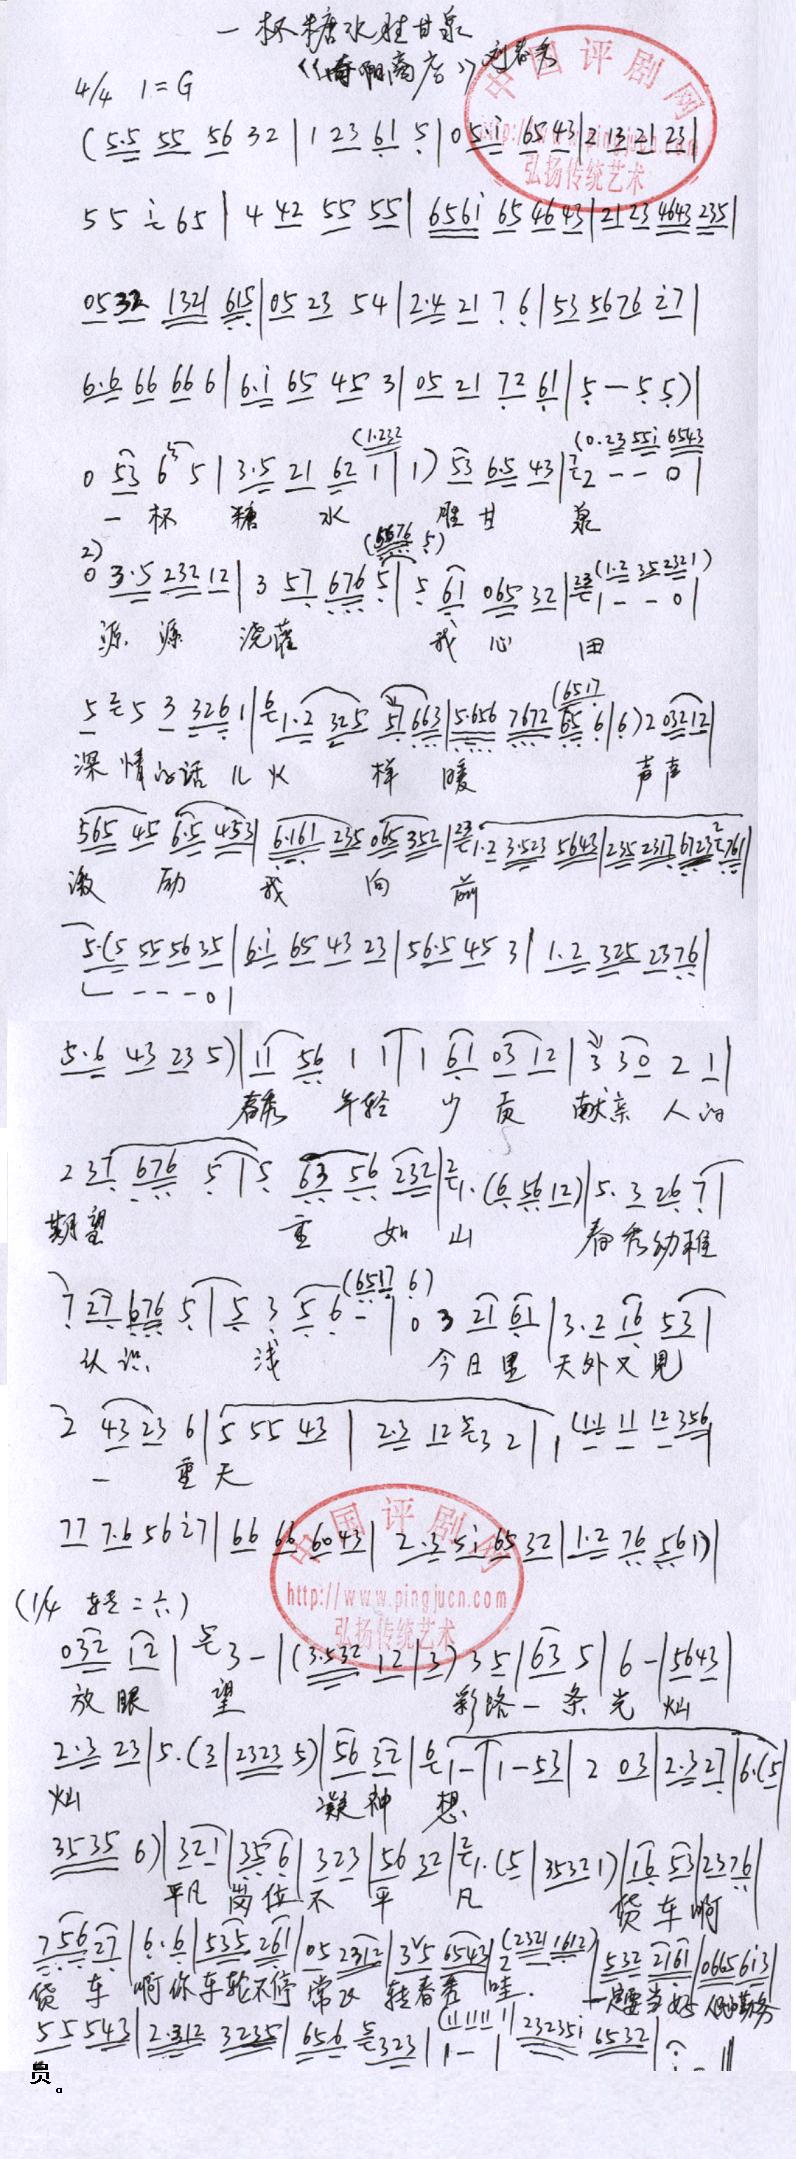 一杯糖水胜甘泉
商店》刘春秀
4/4 1=G
中国评剧网
http://www.pingjucn.com
弘扬传统艺术
(5.5 55 56 32|1 23 61 5|0 5.i 65 43|2 13 21 23|
5 5 i 65|4 42 55 55|656i 65 46 43|21 23 4643 235|
05 32 1321 615|05 23 54|2.4 21 7 6|53 5676 i7|
6.6 66 66 6|6.i 65 45 3|05 21 72 61|5 — 5 5)|
(1.232 (0.23 55i 6543
0 53 6 5|3.5 21 62 1|1) 53 6.5 43|2 - - 0|
一杯 糖 水 胜甘 泉
2) (5676 5) (1.2 35 2321)
0 3.5 232 12|3 57 676 5|5 61 065 32|1 - - 0|
源源 浇灌 我心 田
(6517
5 5 3 326 1|1.2 325 51 663|5.656 7672 65 6|6) 2 03212|
深情的话儿火 样 暖 声声
565 45 6.5 453|6.161 235 065 352|1.2 3.523 5643|235 2317 6723 761|
激 励 我 向 前
5.(5 55 56 35|6.i 65 43 23|56.5 45 3|1.2 325 2376|
- - - 0|
5.6 43 23 5)|11 56 1 1|1 61 03 12|3 30 2 1|
春秀 年轻 少 贡 献亲 人的
2 37 676 5|5 63 56 232|1.(6 56 12)|5. 3 26 7|
期望 重 如 山 春秀幼稚
(6517 6)
7 27 676 5|5 3 5 6 -|0 3 21 61|3.2 16 53|
认识 浅 今日里 天外又见
2 43 23 6|5 55 43|2.3 12 3 2|1 (11 11 12 356|
一 重天
77 7.6 56 i7|66 66 6043|2.3 5i 65 32|1.2 76 561)|
中国评剧网
http://www.pingjucn.com
弘扬传统艺术
032 12|3 -|(3.532 12|3) 35|63 5|6 -|5643|
放眼 望 彩路一条光 灿
2.3 23|5.(3|2323 5)|56 32|1 -|1 - 53|2 03|2.3 27|6.(5|
灿 凝神 想
3535 6)|321|35 6|323|56 32|1.(5|35321)|16 53|2376|
平凡 岗位不 平 凡 货车啊
756 27|6.6|535 261|05 2312|35 6543|2 (2321 1612)|532 2161|0665 6i3|
货 车 啊你车轮不停常 转春秀 哇. 一定要当好人的勤务
55 543|2.312 3235|656 323|1 -|(11 11 1|23235i 6532|1 - ‖
员。